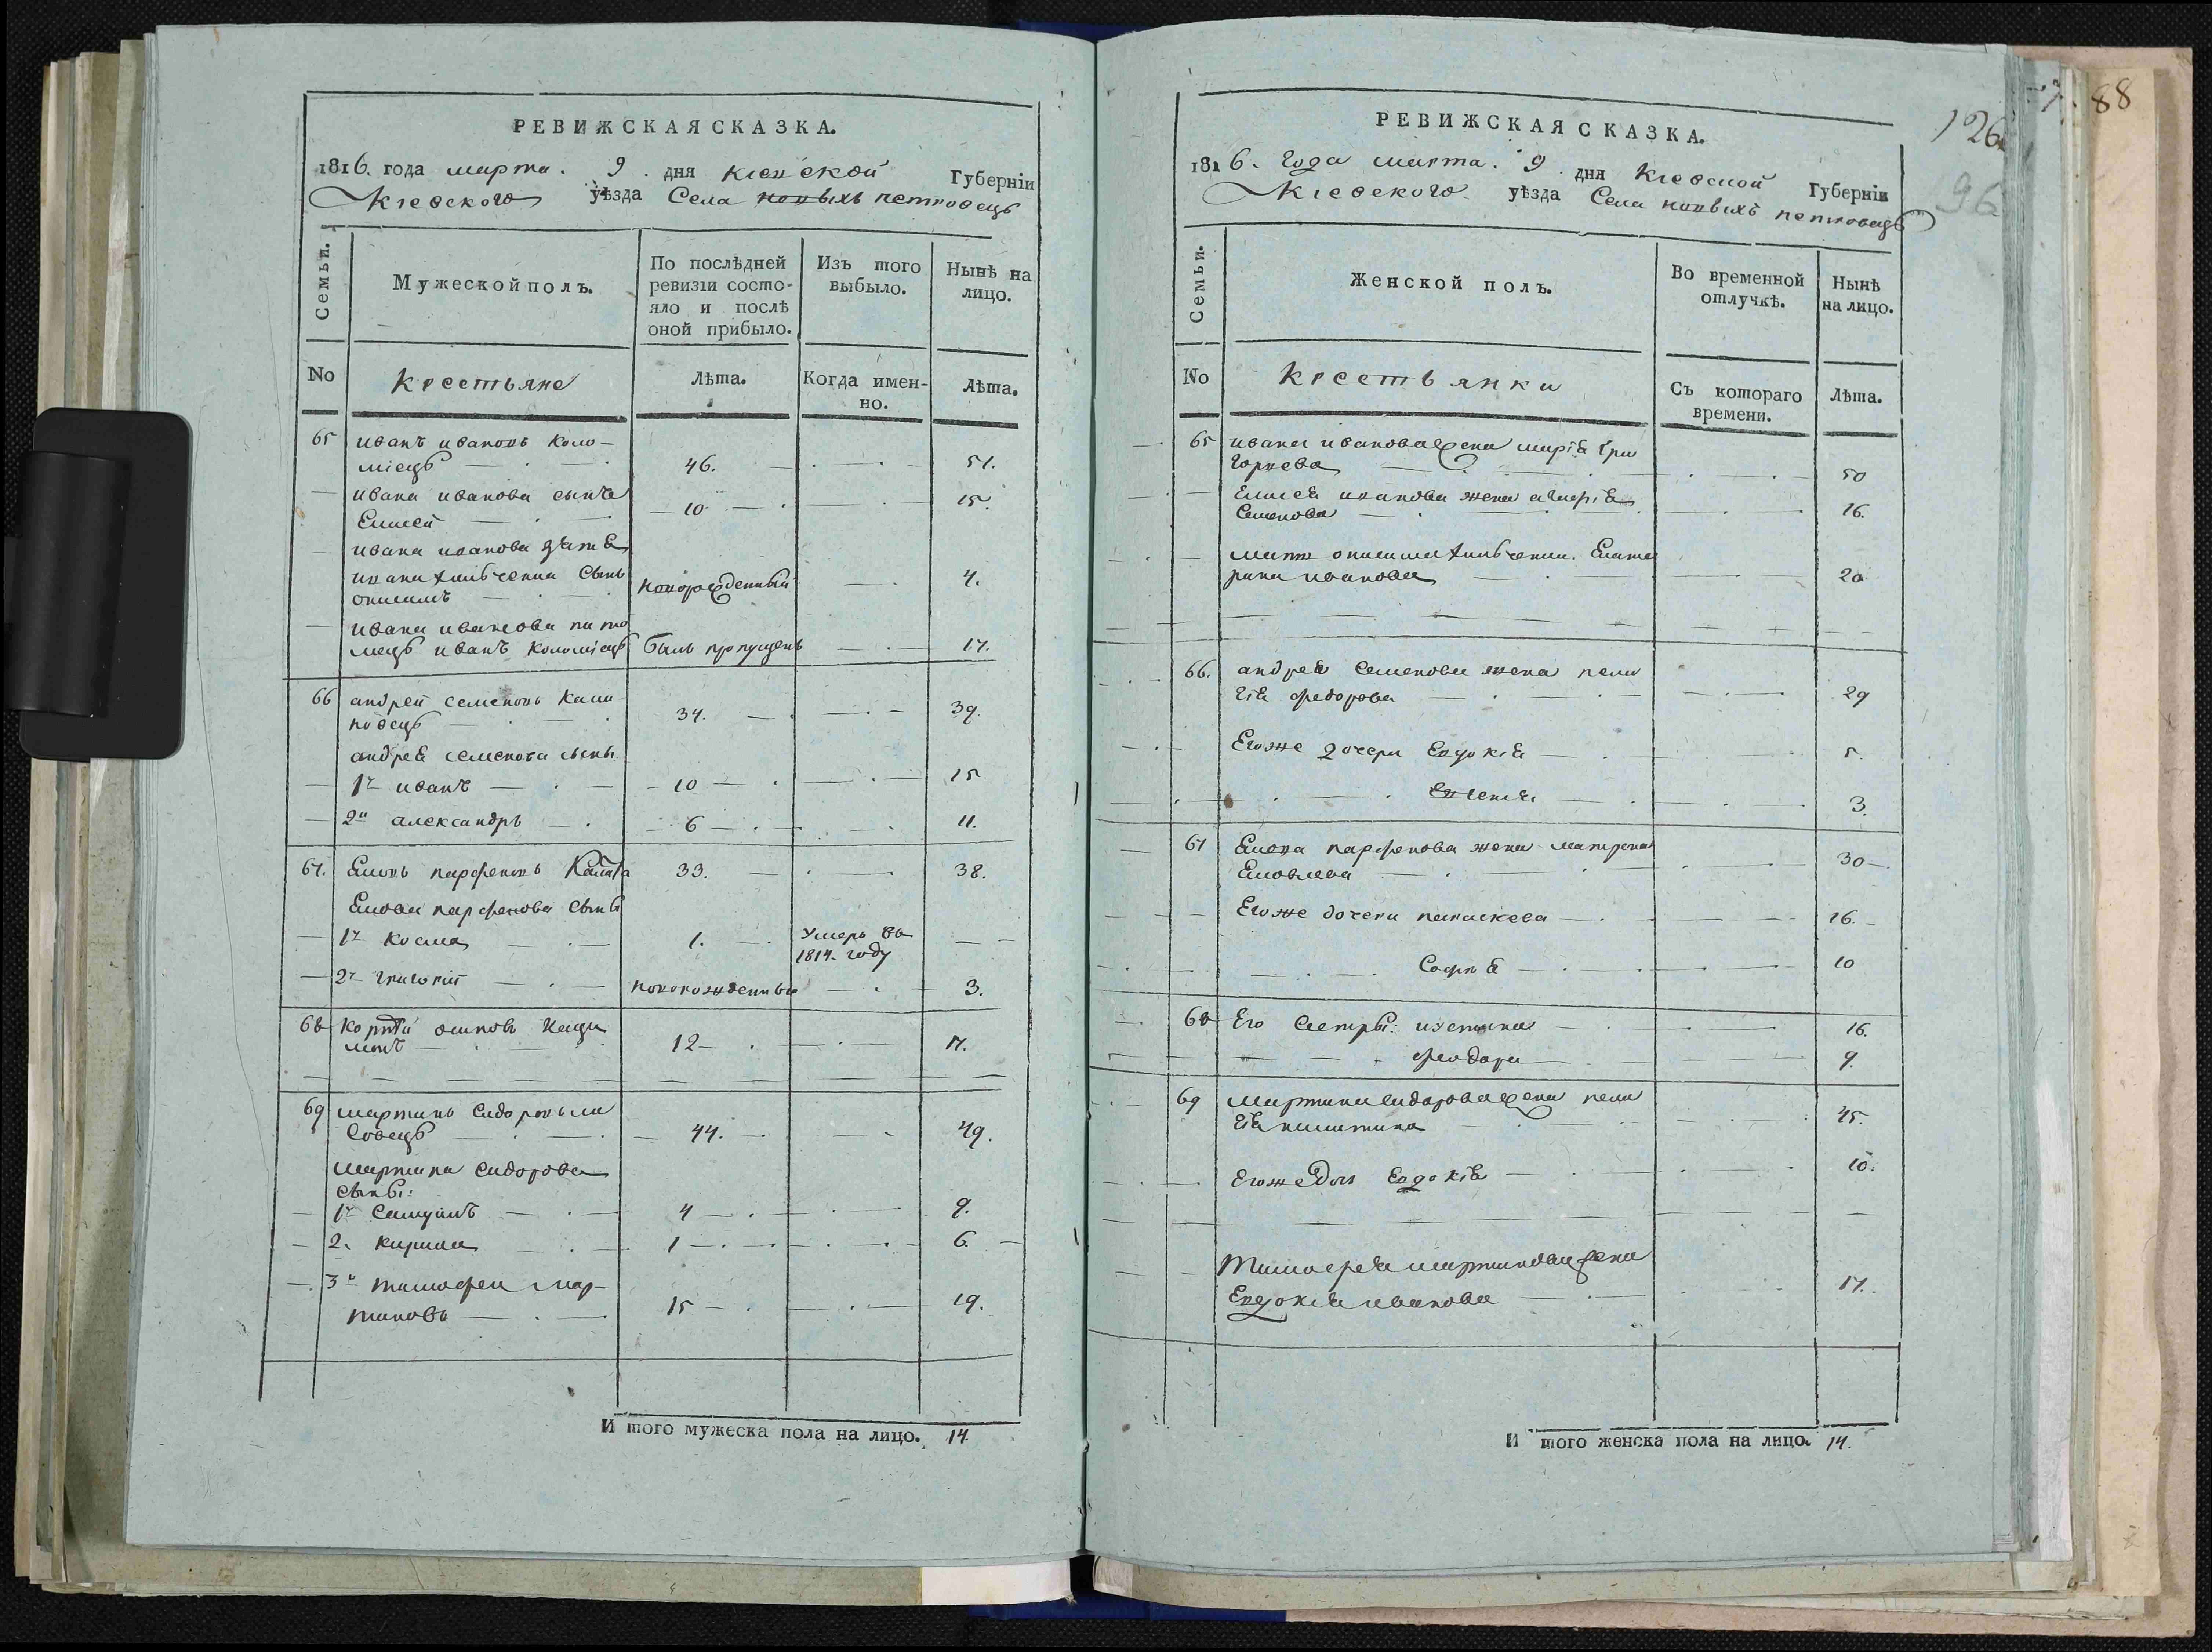 РЕВИЖСКАЯ СКАЗКА.
1816. года марта. 9. дня Кіевской Губерніи
Кіевского уѣзда Села новыхъ петровецъ
Семьи.
Мужеской полъ.
По послѣдней ревизіи состояло и послѣ оной прибыло.
Изъ того выбыло.
Нынѣ на лицо.
No
Крестьяне
Лѣта.
Когда именно.
Лѣта.
65 иванъ ивановъ коло-
міецъ 46. 51.
ивана иванова сынъ
Елисей 10 15.
ивана иванова
сынъ
новорожденный 4.
ивана иванова пито
мецъ иванъ коломіецъ былъ пропущенъ 17.
66 андрей семеновъ
34. 39.
андрея семенова сыны
1й иванъ 10 15
2й александръ 6 11.
67. парфеновъ 33. 38.
парфенова сыны
1й косма 1. Умеръ въ
1814. году
2й григорій новорожденный 3.
68 осиповъ
12 17.
69 мартинъ сидоровъ
44. 49.
мартина сидорова
сыны:
1й самуилъ 4 9.
2й кирила 1 6
3й тимофей мар-
тиновъ 15 19.
И того мужеска пола на лицо. 14
РЕВИЖСКАЯ СКАЗКА.
1816. года марта. 9 дня Кіевской Губерніи
Кіевского уѣзда Села новыхъ петровецъ
126
96
88
Семьи.
Женской полъ.
Во временной отлучкѣ.
Нынѣ на лицо.
No
Крестьянки
Съ котораго времени.
Лѣта.
65 ивана иванова жена марія гри
горьева 50
Елисея иванова жена
Семенова 16.
Екате
рина иванова 20
66. андрея Семенова жена пела
гія федорова 29
Егоже дочери Евдокія 5.
3.
67 парфенова жена матрена
Яковлева 30
Егоже дочери параскева 16.
Софія 10
68 Его Сестры: устина 16.
феодора 9.
69 мартина сидорова жена пела
гія никитина 45.
Егоже дочь Евдокія 10.
Тимофея мартинова жена
Евдокія иванова 17.
И того женска пола на лицо. 14.